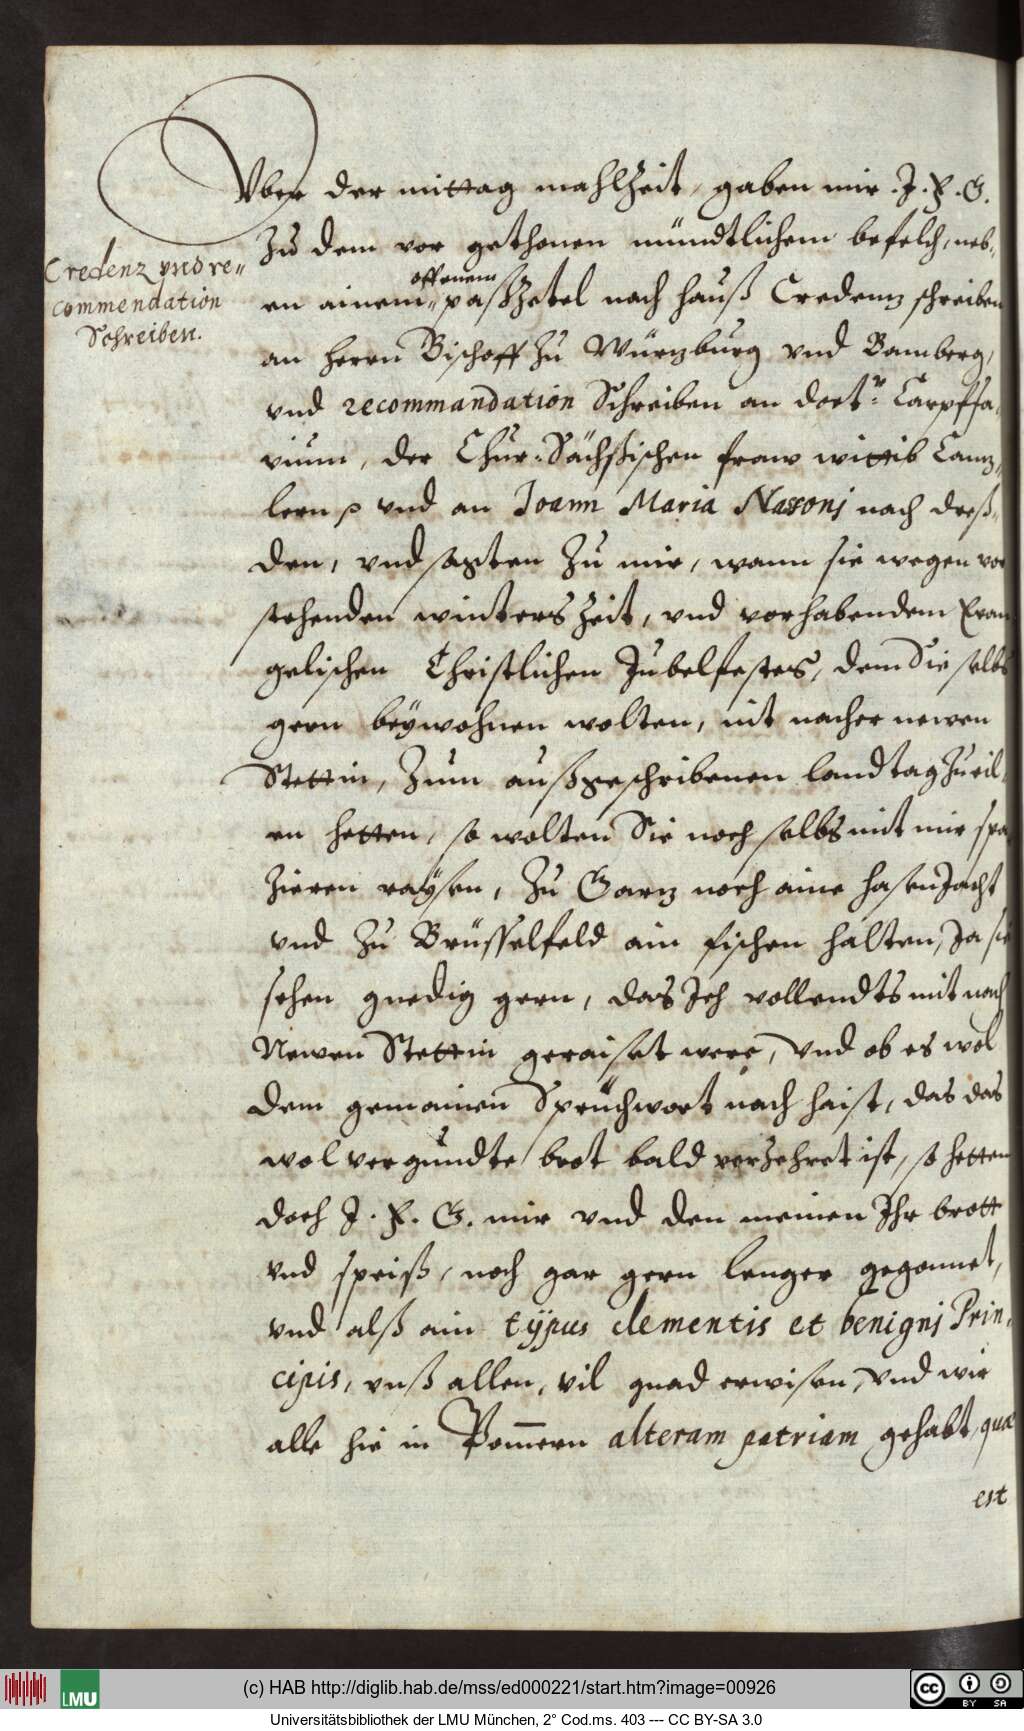 Vber der mittag mahlzeit, gaben mir .J.F.G.
Zu dem vor gethonen mündtlichem befelch, neb„
Credenz vnd re„
commendation
Schreiben.
offenem
en ainem„ paßzetel nach hauß Credenz schreiben
an herrn Bischoff zu Würzburg vnd Bamberg,
vnd recommandation Schreiben an doct.r Carpffa„
vium, der Chur-Sächsischen fraw wittib Canz„
lern vnd an Joann Maria Nassonj nach dreß„
den, vnd sagten Zu mir, wann sie wegen vor
stehenden winters Zeit, vnd vorhabendem Evan
gelischen Christlichen Jubelfestes, dem Sie selbs
gern beÿwohnen wolten, nit nacher newen
Stettin, Zum außgeschribenen landtag Zu eil„
en hetten, so wolten Sie noch selbs mit mir spa
Zieren raÿsen, Zu Garz noch aine hasen Jacht
vnd Zu Brüsselfeld ain fischen halten, Ja sie
sehen gnedig gern, das Jch vollendts mit nach
Newen Stettin geraiset were, Vnd ob es wol
dem gemainen Sprüchwort nach haist, das das
wol vergundte brot bald verzehret ist, so hetten
doch J.F.G. mir vnd den meinen Jhr brott
vnd speiß, noch gar gern lenger gegonnet,
vnd alß ain tÿpus clementis et benignj Prin„
cipis, vnß allen, vil gnad erwisen, Vnd wir
alle hie in Pom̄ern alteram patriam gehabt, quæ
est
LMU
(c) HAB http://diglib.hab.de/mss/ed000221/start.htm?image=00926
cc BY SA
Universitätsbibliothek der LMU München, 2° Cod.ms. 403 --- CC BY-SA 3.0